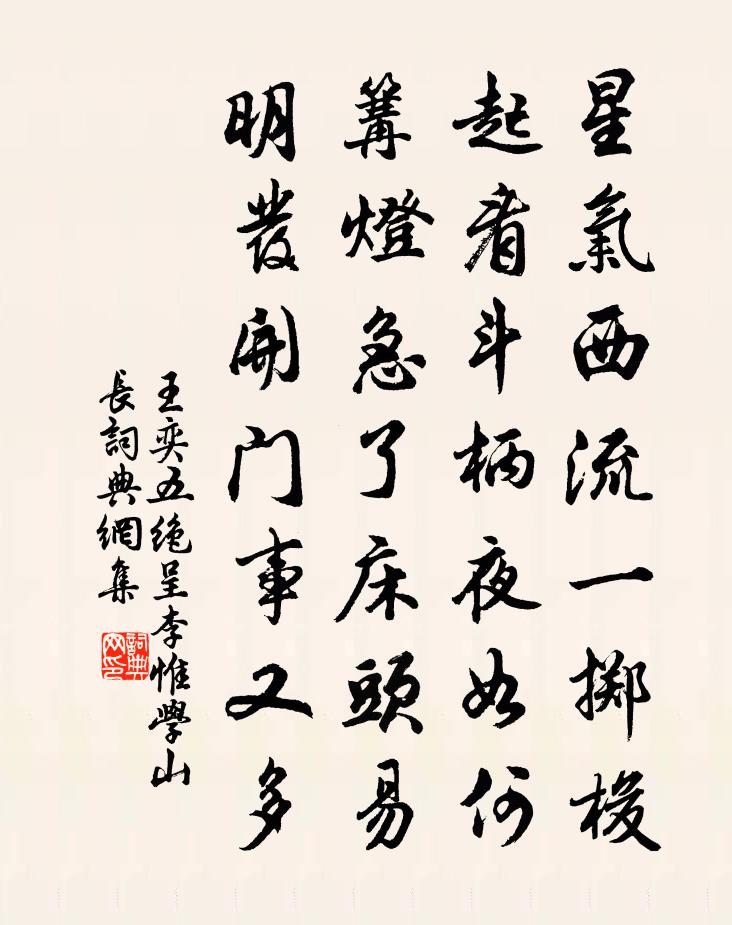 星氣西流一擲梭
起看斗柄夜如何
篝燈急了床頭易
明發開門事又多
王奕五绝呈李惟學山
長詞典網集
詞典网印